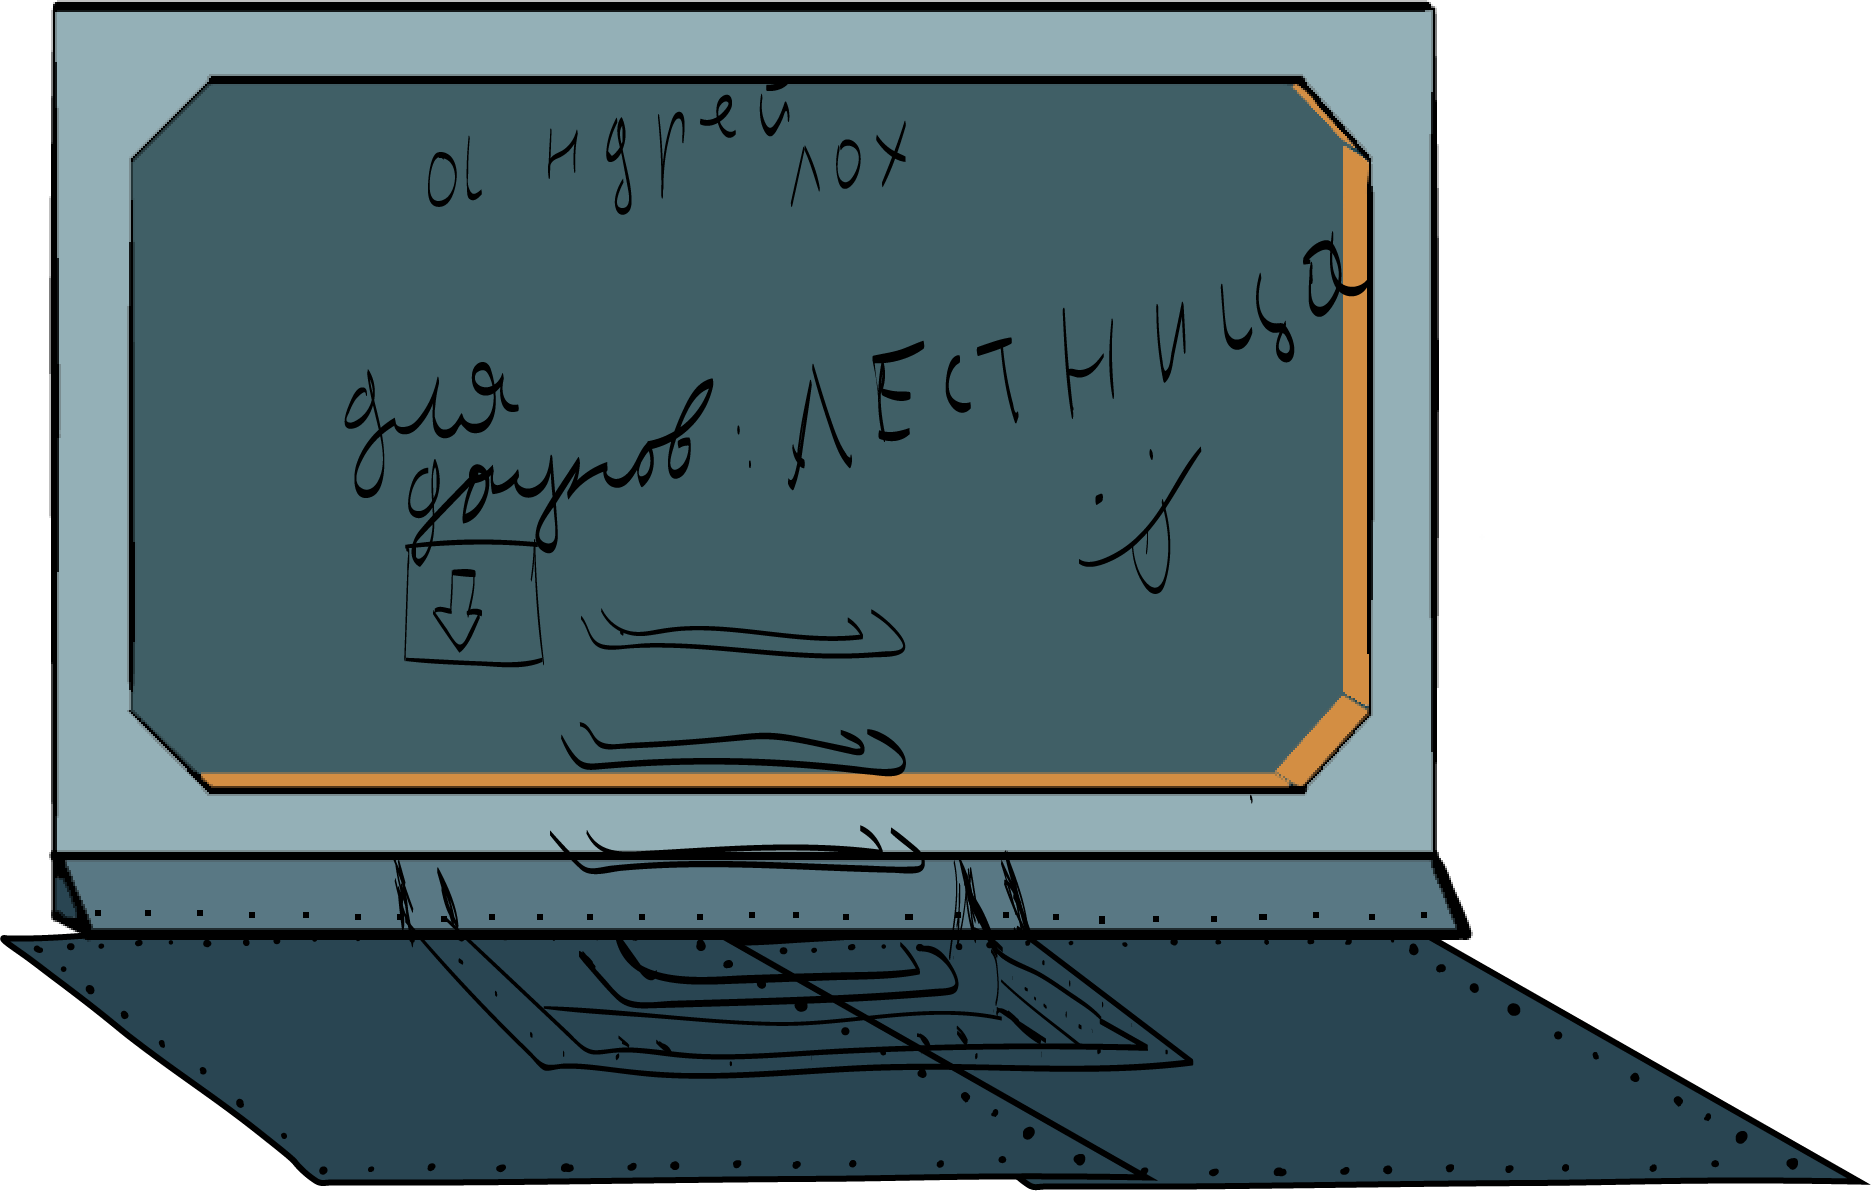 андрей лох
для
даунов: ЛЕСТНИЦа